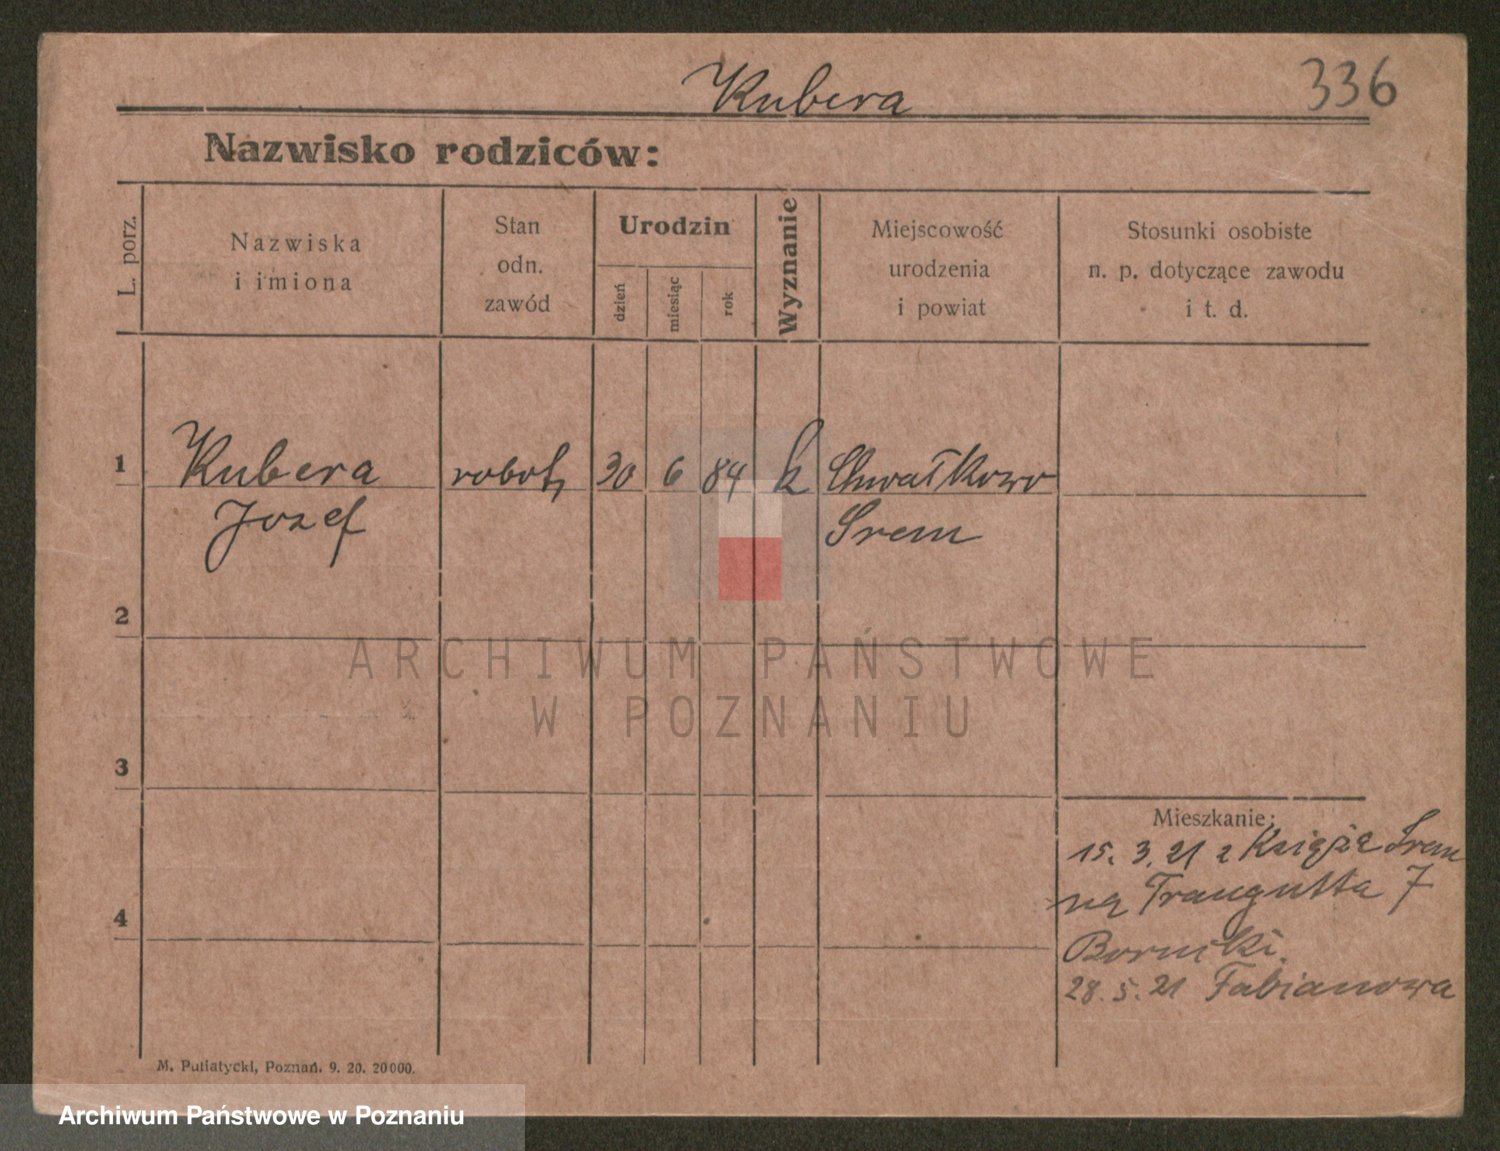 Kubera
336
Nazwisko rodziców:
L. porz.
Nazwiska
i imiona
Stan
odn.
zawód
Urodzin
dzień
miesiąc
rok
Wyznanie
Miejscowość
urodzenia
i powiat
Stosunki osobiste
n. p. dotyczące zawodu
i t. d.
1
Kubera robotn 30 6 84 k Chwałkowo
Jozef Srem
2
3
4
Mieszkanie:
15. 3. 21 z Książa Srem
na Traugutta 7
28. 5. 21 Fabianowa
M. Putiatycki, Poznań. 9. 20. 20000.
ARCHIWUM PAŃSTWOWE
W POZNANIU
Archiwum Państwowe w Poznaniu